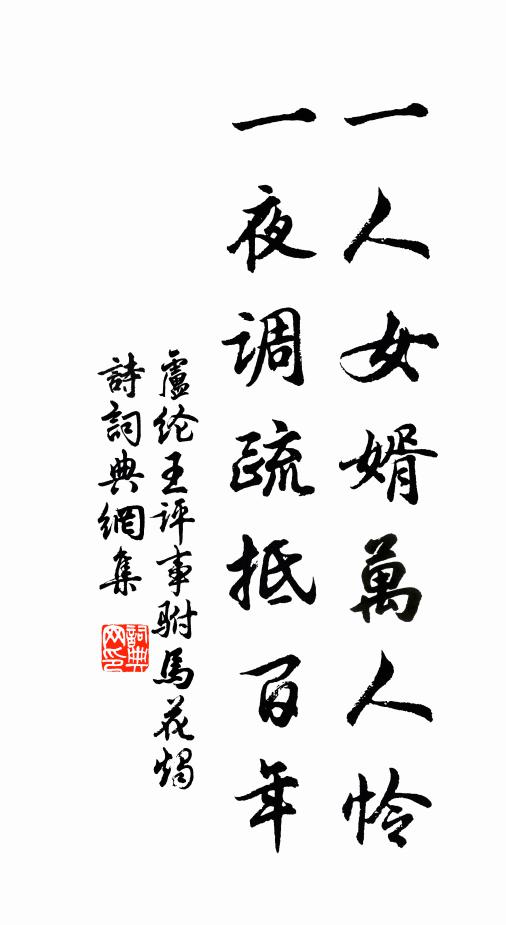 一人女婿萬人怜
一夜调疏抵百年
盧纶王评事駙馬花燭
詩詞典網集
詞典网印